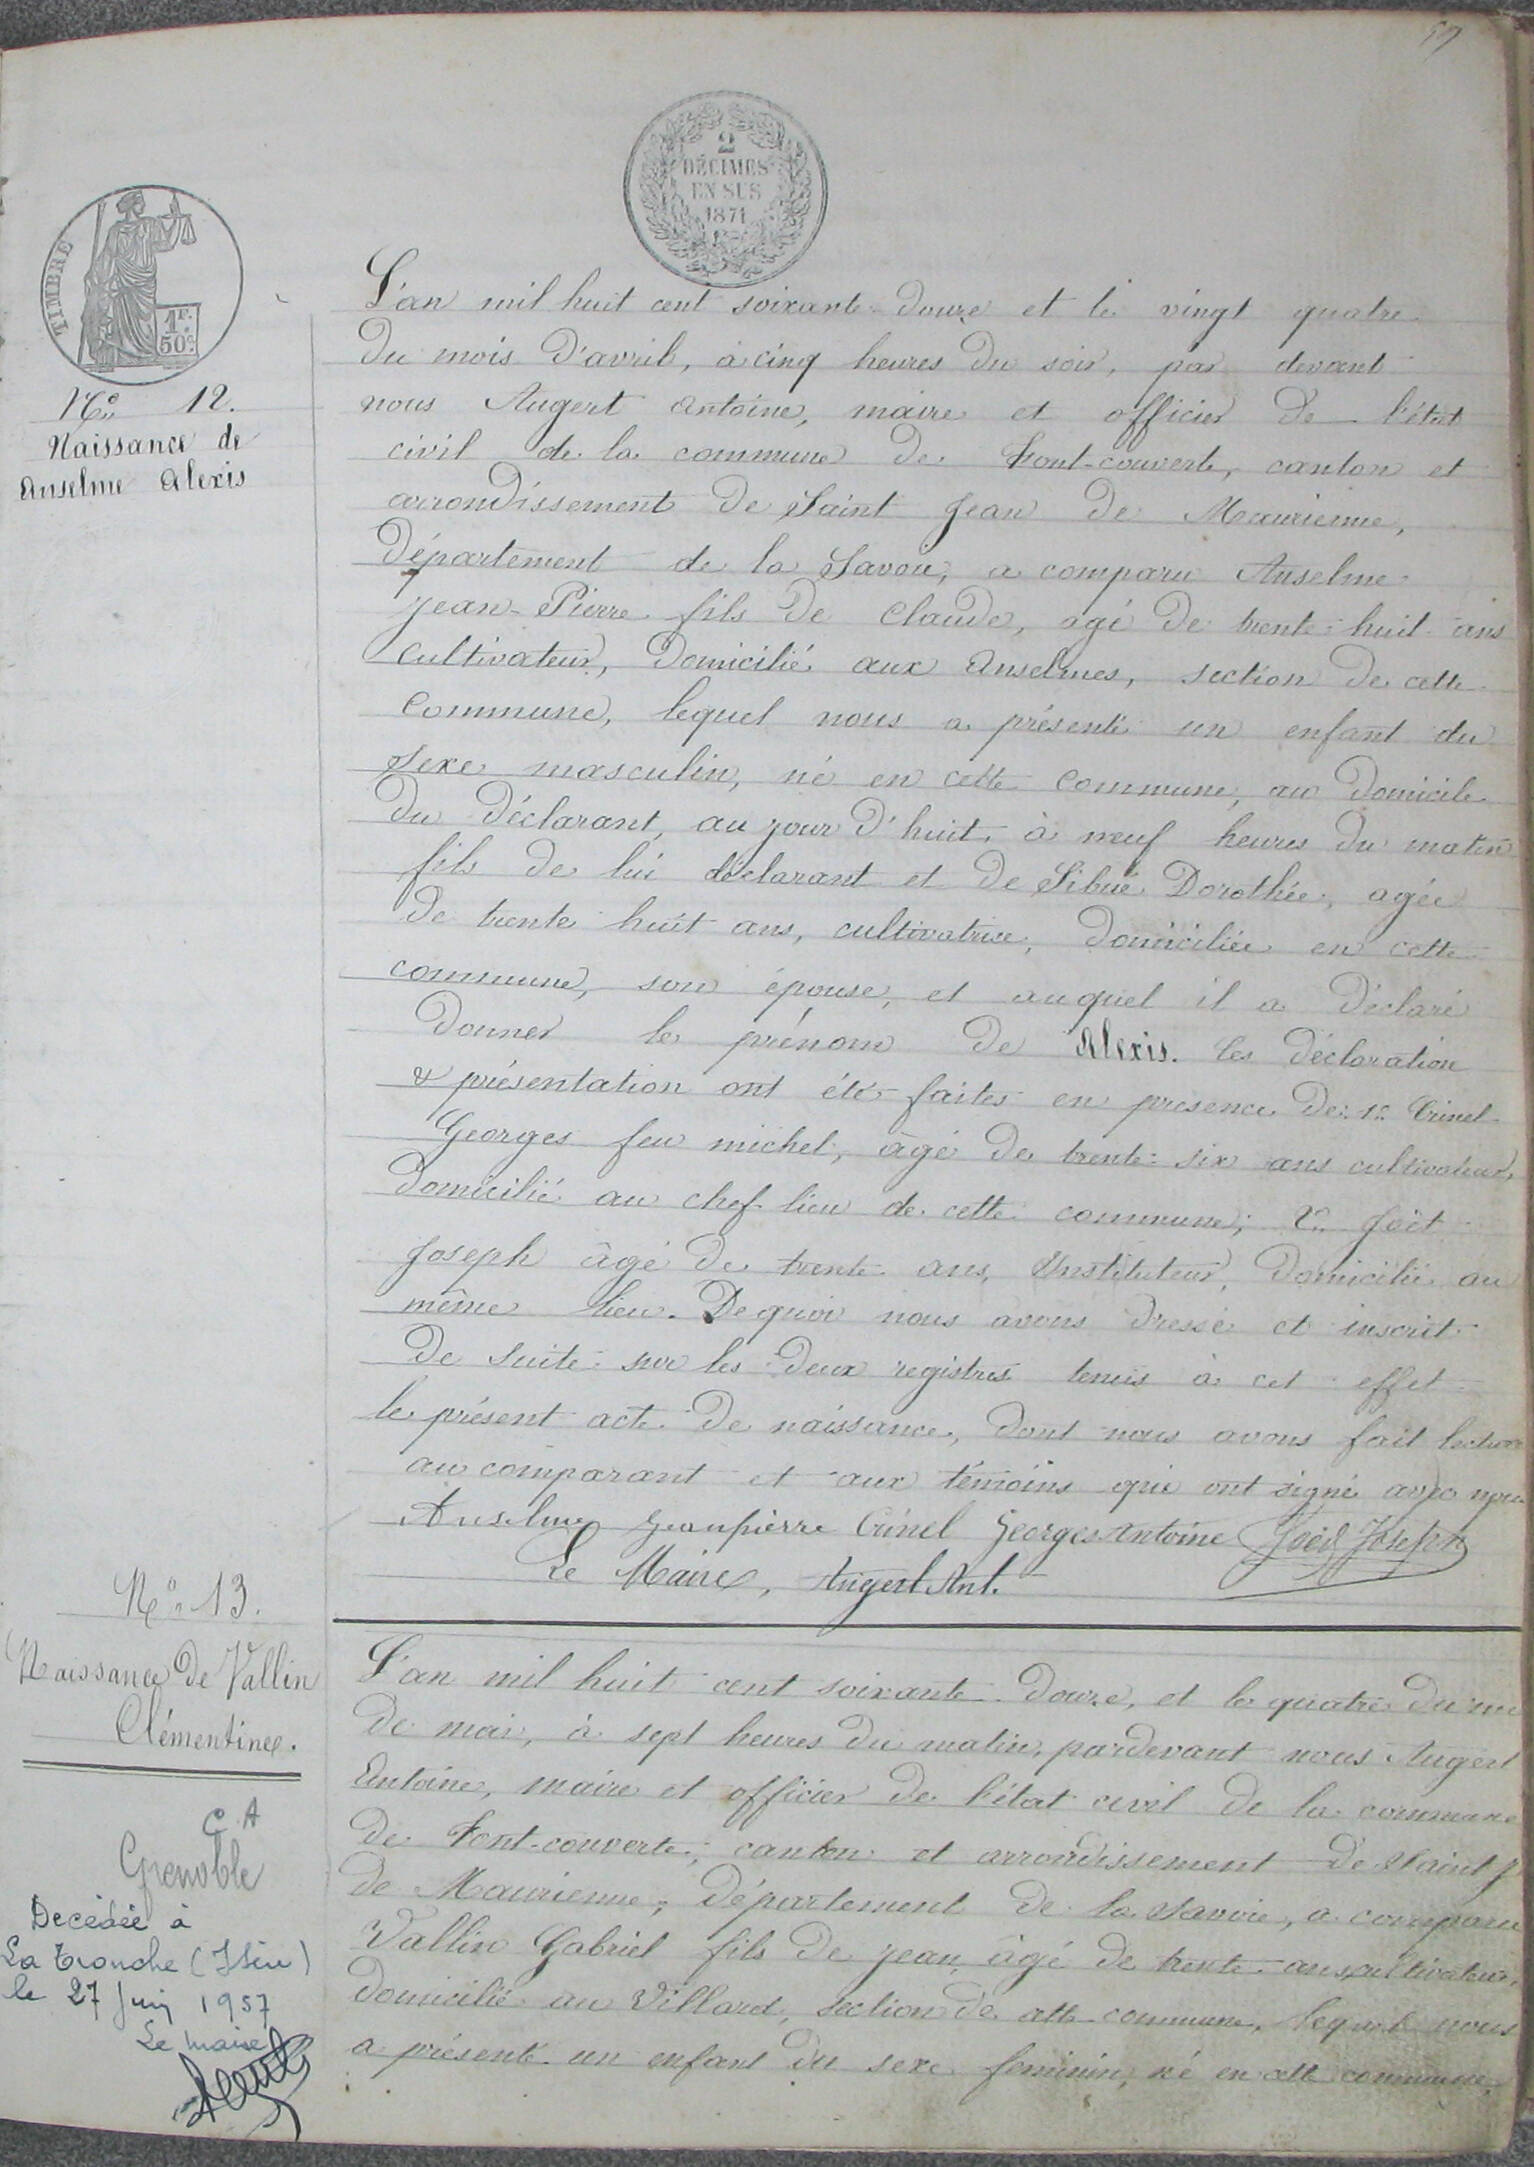 57
2
DÉCIMES
EN SUS
1871
TIMBRE
1F.
50c.
No 12.
Naissance de
Anselme Alexis
L'an mil huit cent soixante-douze et le vingt quatre
du mois d'avril, à cinq heures du soir, par devant
nous Augert Antoine, maire et officier de l'état
civil de la commune de Font-couverte, canton et
arrondissement de Saint Jean de Maurienne,
département de la Savoie, a comparu Anselme
Jean-Pierre fils de Claude, agé de trente-huit ans
cultivateur, domicilié aux Anselmes, section de cette
commune, lequel nous a présenté un enfant du
sexe masculin, né en cette commune, au domicile
du déclarant, au jour d'huit, à neuf heures du matin
fils de lui déclarant et de Sibué Dorothée, agée
de trente huit ans, cultivatrice, domiciliée en cette
commune, son épouse, et auquel il a déclaré
donner le prénom de Alexis. les déclaration
& présentation ont été faites en presence de: 1o Crinel
Georges feu michel, âgé de trente-six ans cultivateur,
domicilié au chef-lieu de cette commune; 2o Joët
Joseph âgé de trente ans, Instituteur, domicilié au
même lieu. De quoi nous avons dressé et inscrit
de suite sur les deux registres tenus à cet effet
le présent acte de naissance, dont nous avons fait lecture
au comparant et aux témoins qui ont signé avec nous
Anselme Jeanpierre Crinel Georges Antoine Joët Joseph
Le Maire, Augert Ant.
No 13.
Naissance de Vallin
Clémentine.
L'an mil huit cent soixante-douze, et le quatre du
de mai, à sept heures du matin, pardevant nous Augert
Antoine, maire et officier de l'état civil de la commune
de Font-couverte, canton et arrondissement de Saint J
de Maurienne, département de la Savoie, a comparu
Vallin Gabriel fils de Jean, âgé de trente ans, cultivateur,
domicilié au Villard, section de cette commune, lequel nous
a présenté un enfant du sexe feminin, né en cette commune,
C. A
Grenoble
Decédée à
La Tronche (Isère)
le 27 Juin 1957
Le maire